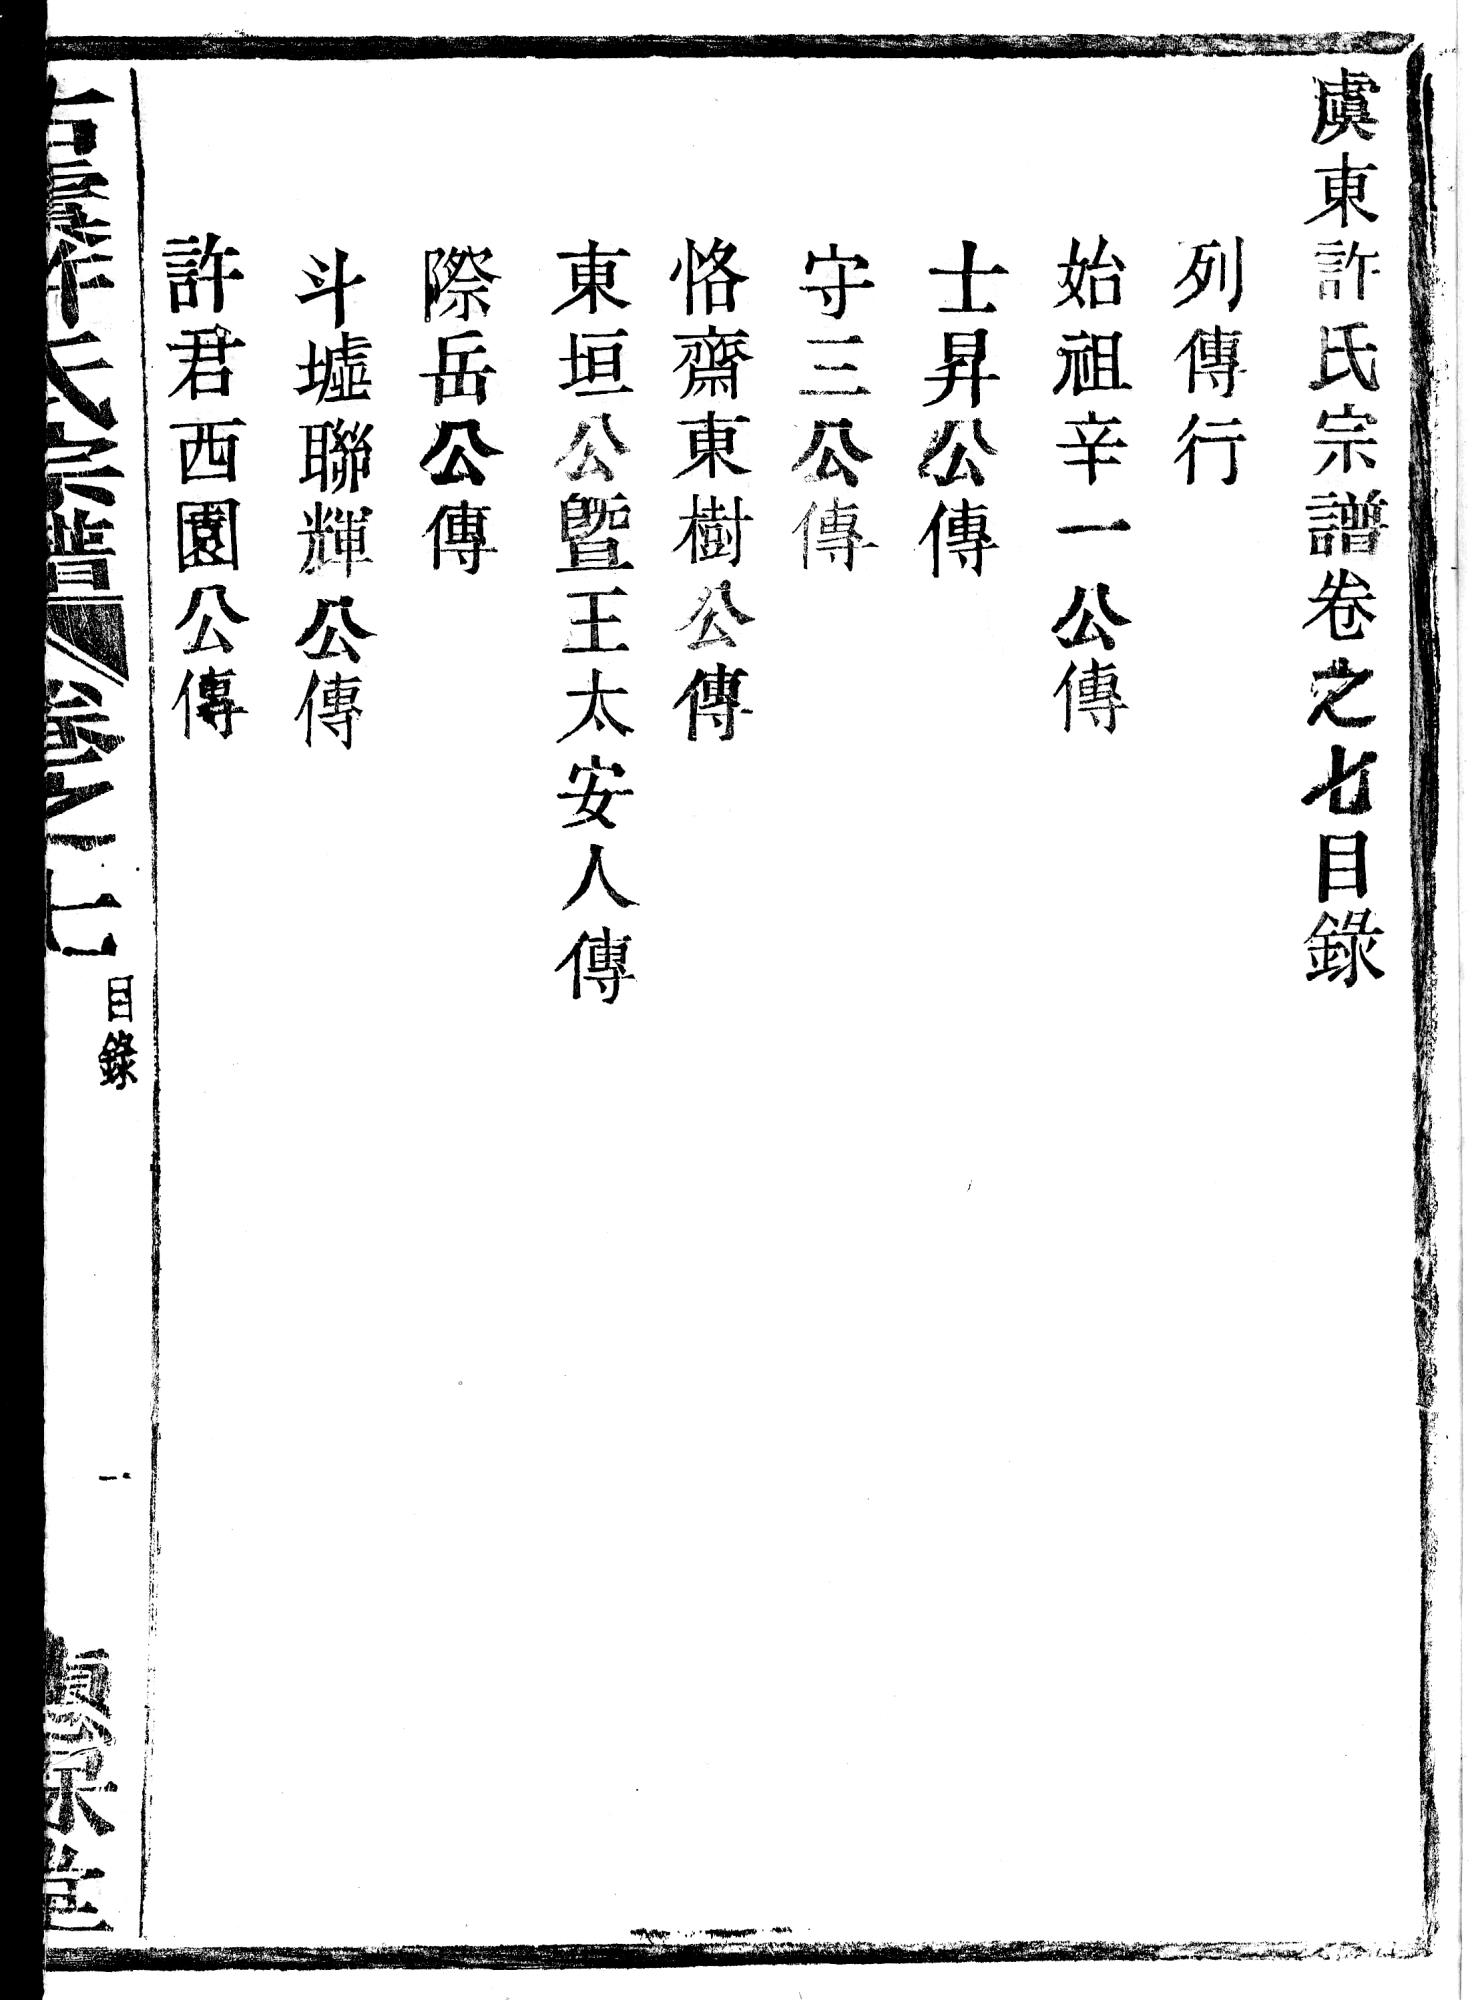 虞東許氏宗譜卷之七目錄
列傳行
始祖辛一公傳
士昇公傳
守三公傳
恪齋東樹公傳
東垣公暨王太安人傳
際岳公傳
斗墟聯輝公傳
許君西園公傳
氏宗譜 卷之七 目錄 一 堂